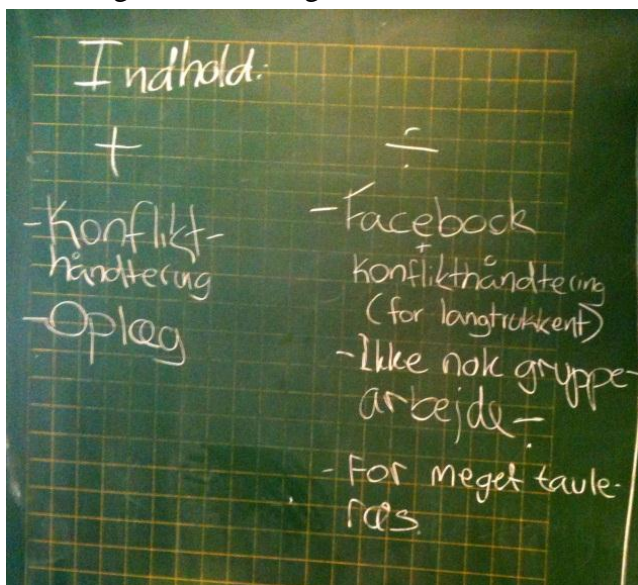 Indhold:
+
-Konflikt-
håndtering
-Oplæg
÷
-Facebook
+
Konflikthåndtering
(for langtrukkent)
-Ikke nok gruppe-
arbejde-
- For meget tavle-
ræs.